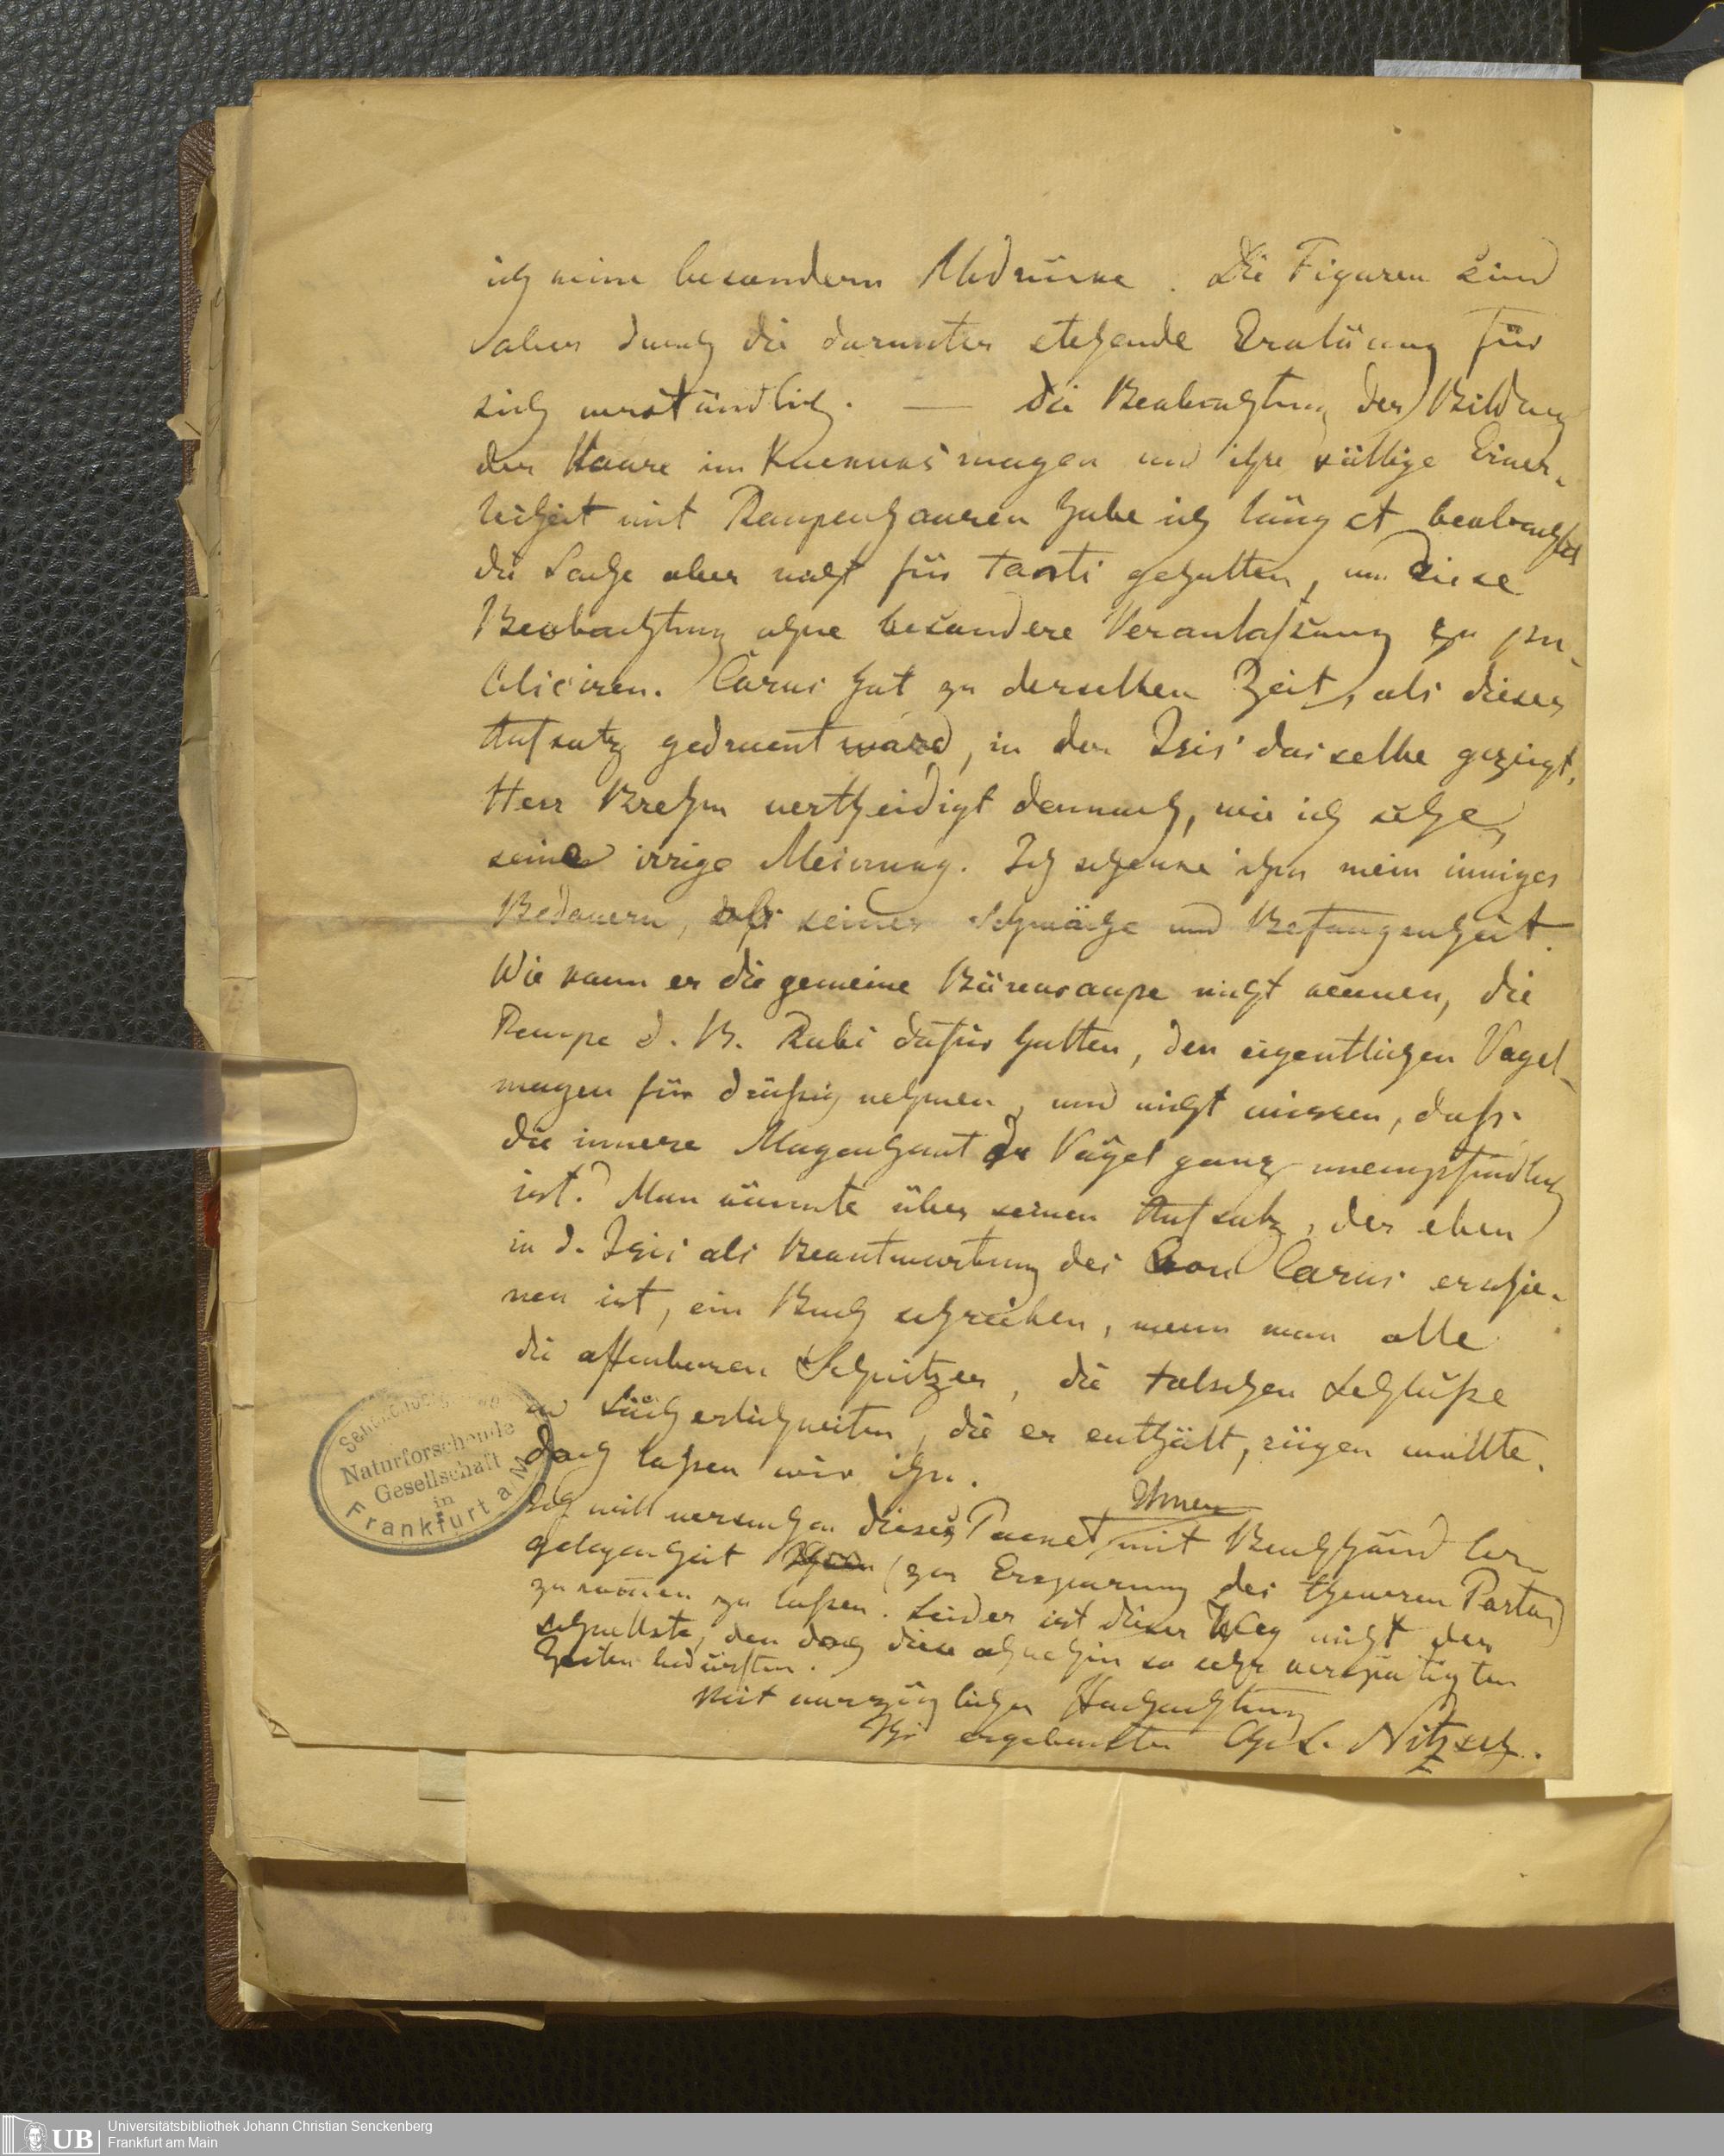 ich keine besondern Abdrücke. Die Figuren sind
aber durch die darunter stehende Erklärung für
sich verständlich. — Die Beobachtung der Bildung
der Haare im Kuckuksmagen und ihre völlige Einer-
leiheit mit Raupenhaaren habe ich längst beobachtet
die Sache aber nicht für tanti gehalten, um diese
Beobachtung ohne besondere Veranlaßung zu pu-
bliciren. Carus hat zu derselben Zeit, als dieser
Aufsatz gedruckt ward, in der Isis dasselbe gezeigt,
Herr Brehm vertheidigt dennoch, wie ich sehe,
seine irrige Meinung. Ich schenke ihm mein inniges
Bedauern, seiner Schwäche und Befangenheit.
Wie kann er die gemeine Bärenraupe nicht kennen, die
Raupe d. B. Rubi dafür halten, den eigentlichen Vogel-
magen für drüßig nehmen, und nicht wissen, daß
die innere Magenhaut der Vögel ganz unempfindlich
ist? Man könnte über seinen Aufsatz, der eben
in d. Isis als Beantwortung des von Carus erschie-
nen ist, ein Buch schreiben, wenn man alle
die offenbaren Schnitzer, die falschen Schlüße
u Lächerlichkeiten, die er enthält, rügen wollte.
Doch laßen wir ihn.
Ich will versuchen dieses Packet Ihnen mit Buchhändler-
gelegenheit (zur Ersparung des theuren Portos)
zukommen zu laßen. Leider ist dieser Weg nicht der
schnellste, den doch diese ohnehin so sehr verspätigten
Zeilen bedürften.
Mit vorzüglicher Hochachtung
Ihr ergebenster Chr. L. Nitzsch.
Naturforschende
Gesellschaft
in
Frankfurt a M
UB
Universitätsbibliothek Johann Christian Senckenberg
Frankfurt am Main